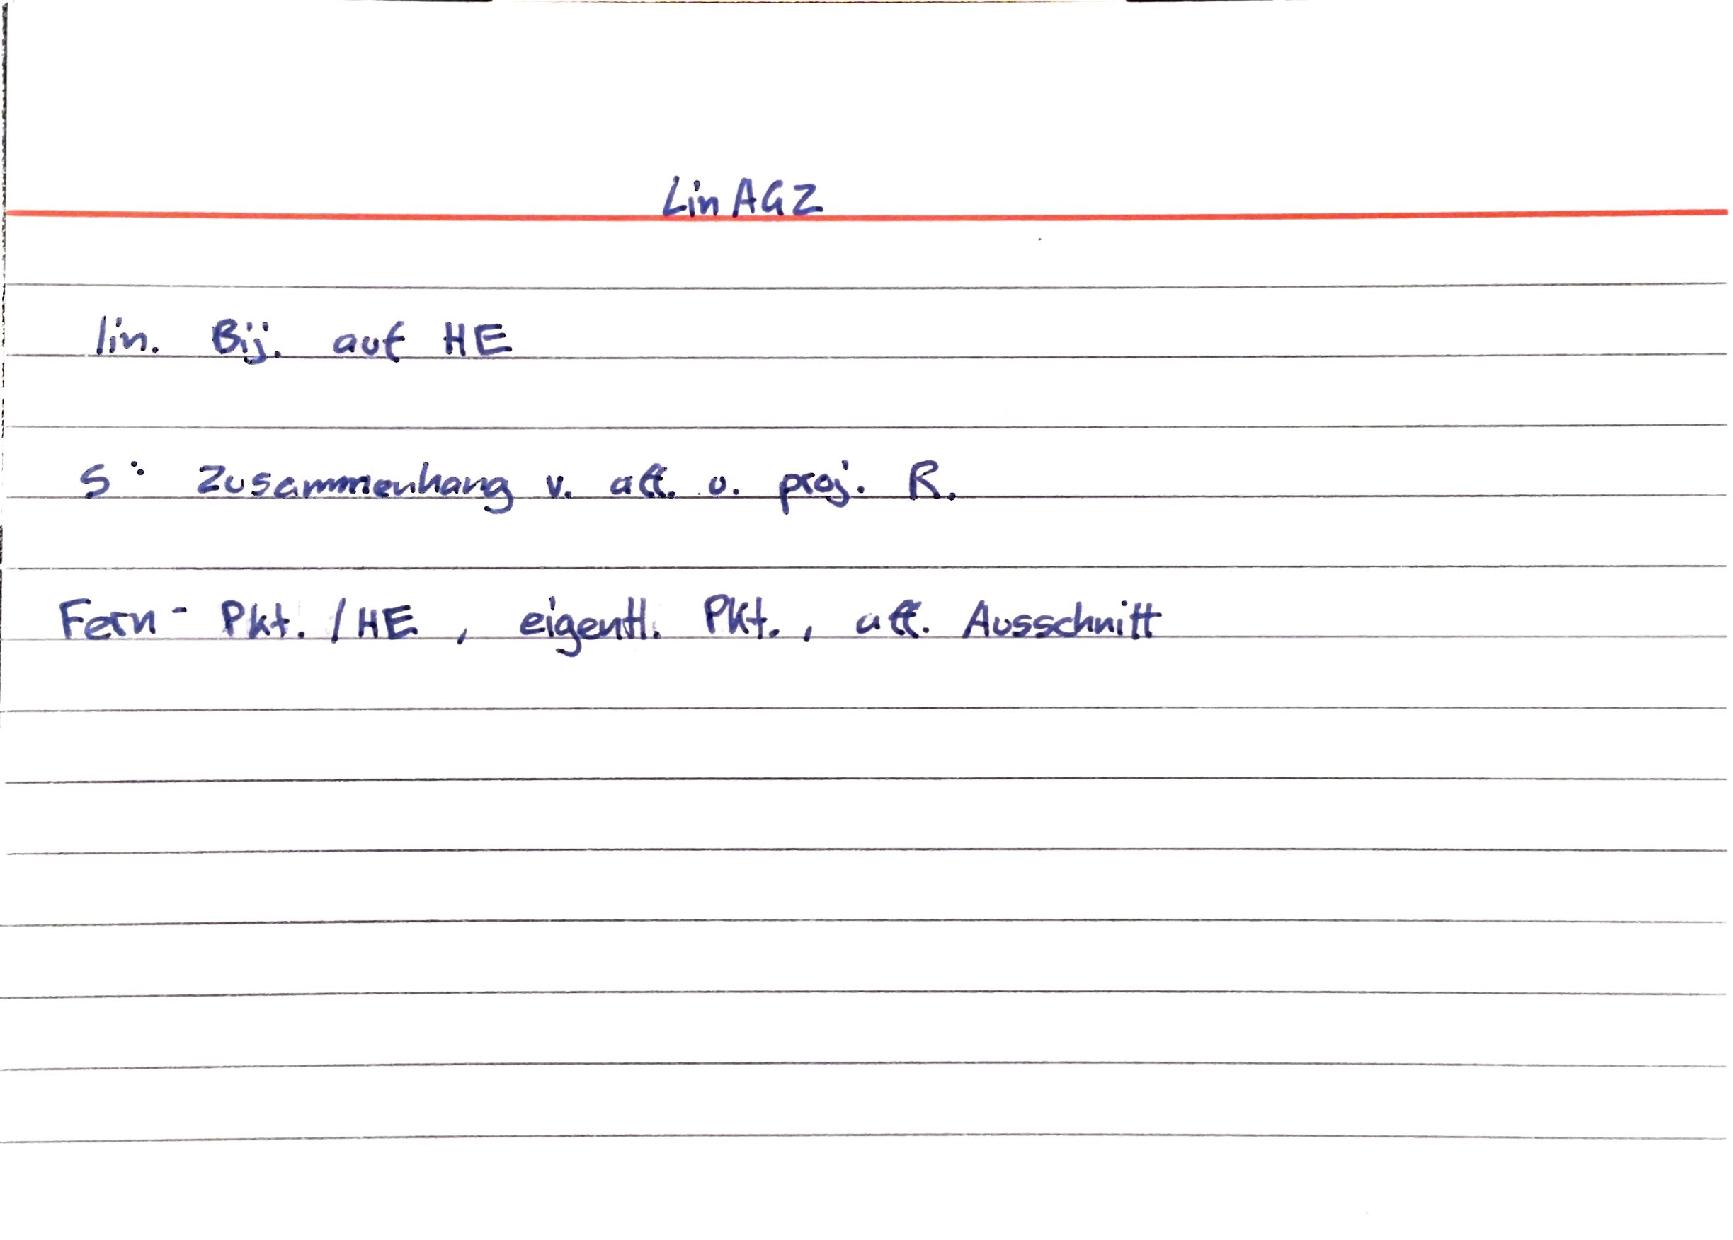 LinAG2
lin. Bij. auf HE
S: Zusammenhang v. aff. u. proj. R.
Fern- Pkt. / HE, eigentl. Pkt., aff. Ausschnitt